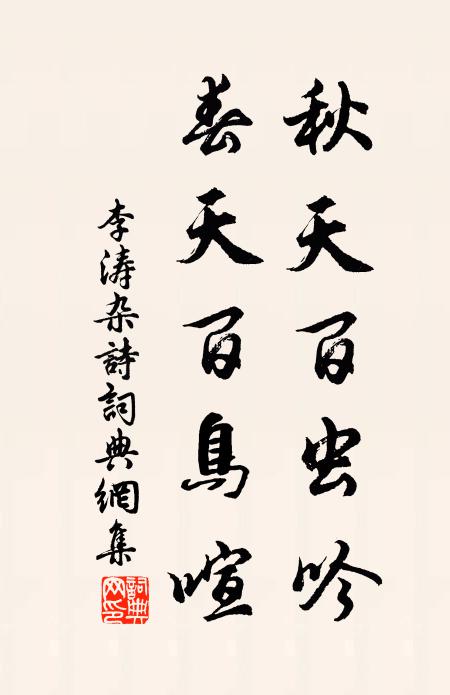 秋天百虫吟
春天百鳥喧
李涛杂詩詞典網集
詞典网印